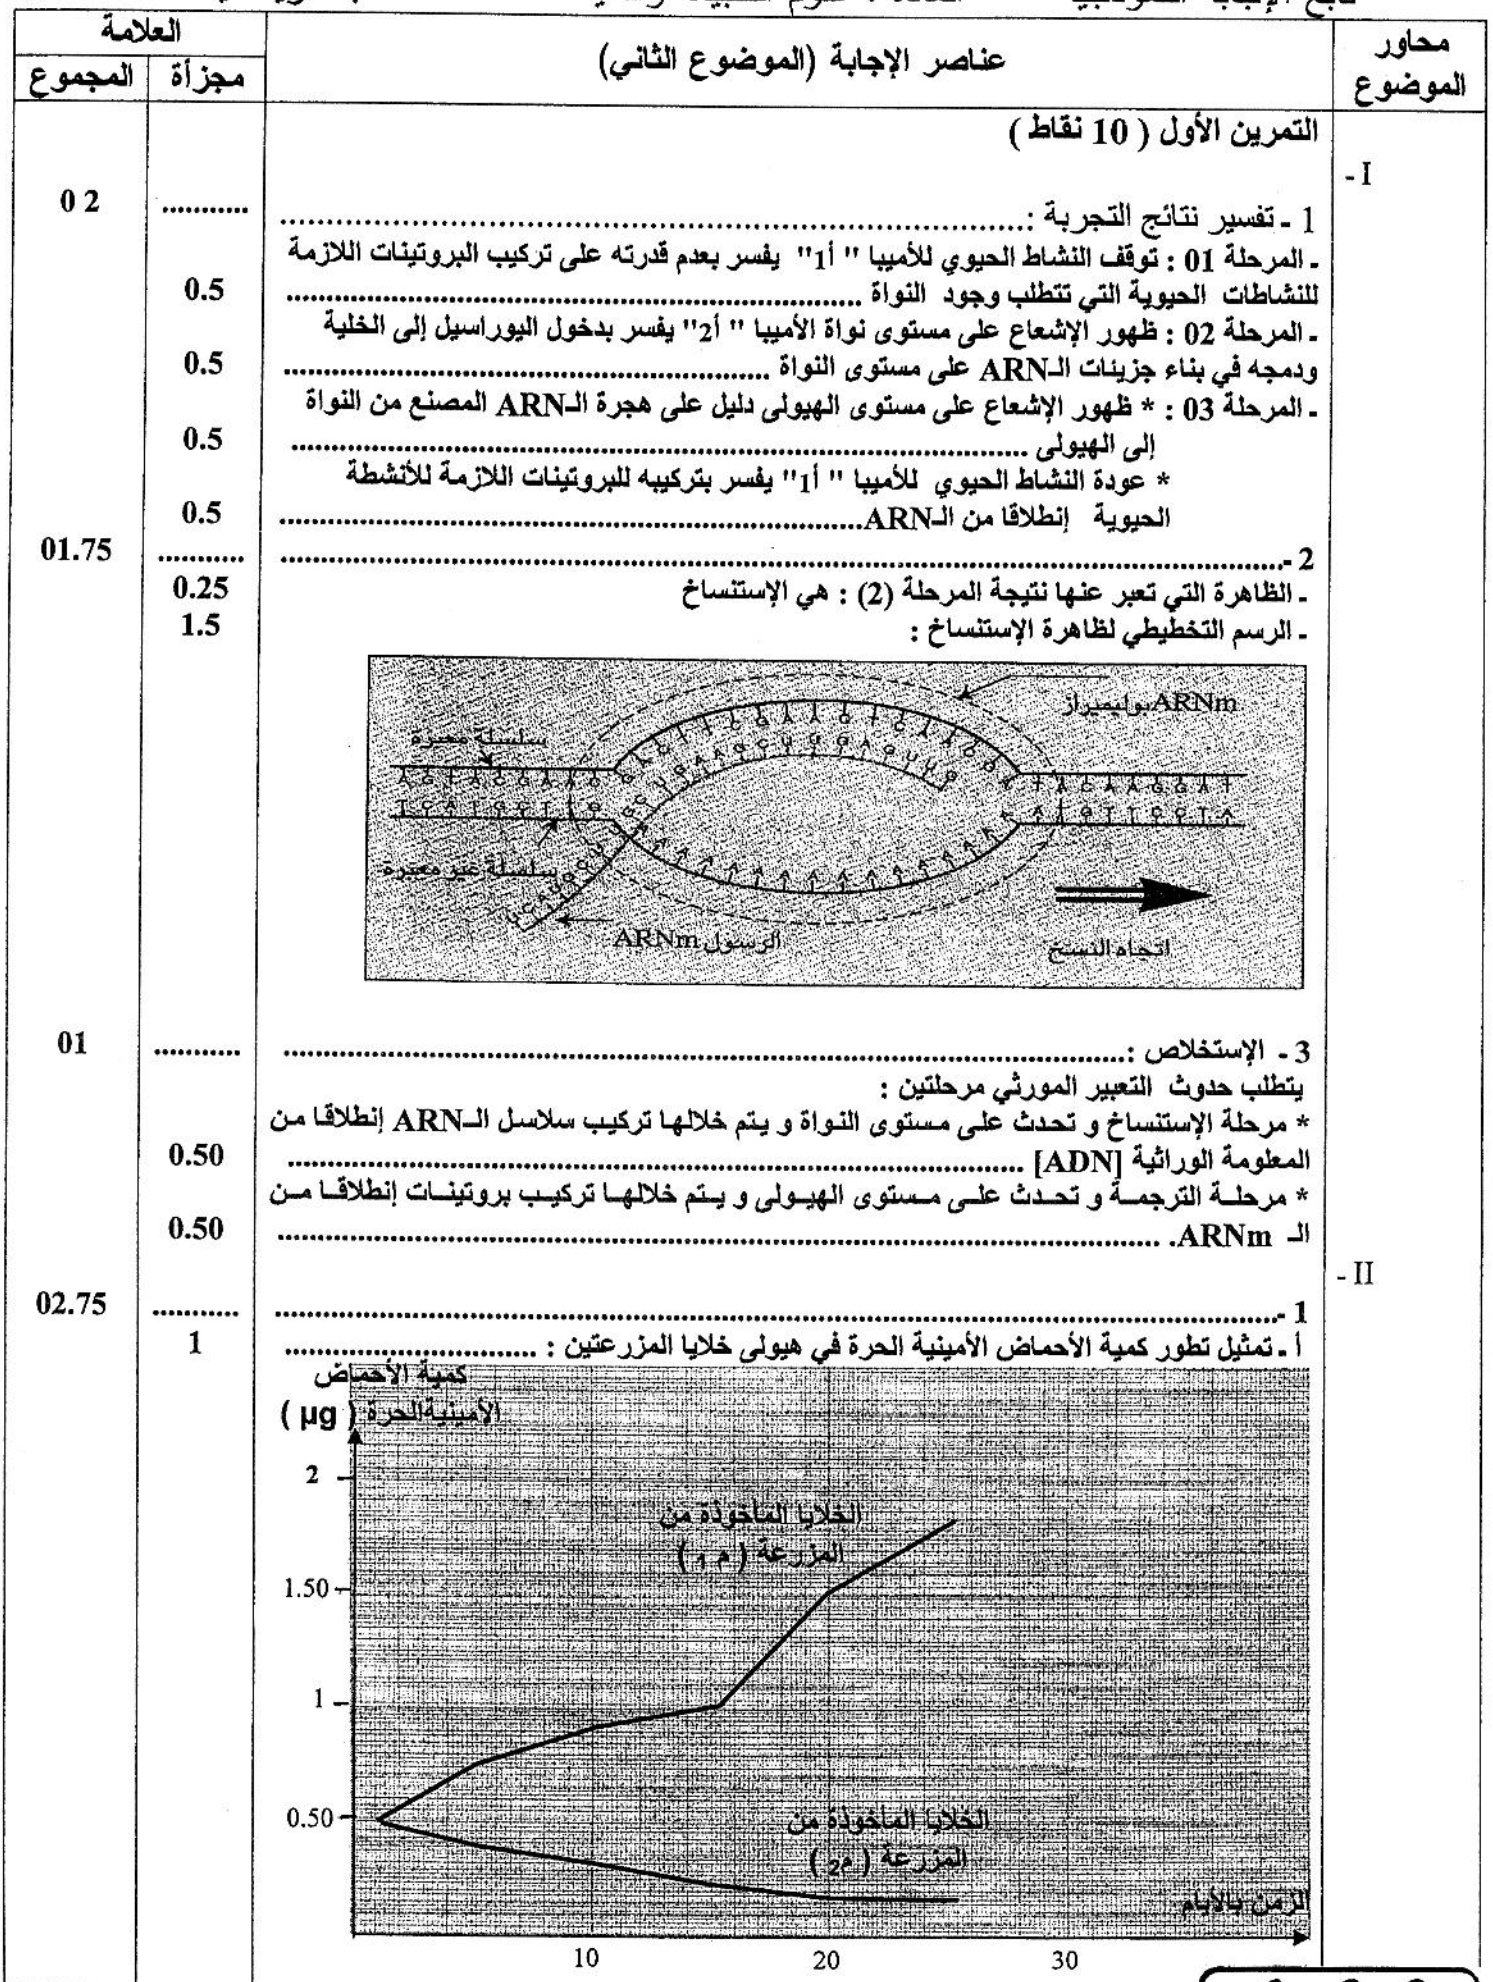 العلامة
محاور الموضوع
عناصر الإجابة (الموضوع الثاني)
مجزأة
المجموع
التمرين الأول ( 10 نقاط )
I -
1 - تفسير نتائج التجربة :.......... 0 2
- المرحلة 01 : توقف النشاط الحيوي للأميبا " أ1" يفسر بعدم قدرته على تركيب البروتينات اللازمة
للنشاطات الحيوية التي تتطلب وجود النواة .......... 0.5
- المرحلة 02 : ظهور الإشعاع على مستوى نواة الأميبا " أ2" يفسر بدخول اليوراسيل إلى الخلية
ودمجه في بناء جزيئات الـARN على مستوى النواة .......... 0.5
- المرحلة 03 : * ظهور الإشعاع على مستوى الهيولى دليل على هجرة الـARN المصنع من النواة
إلى الهيولى .......... 0.5
* عودة النشاط الحيوي للأميبا " أ1" يفسر بتركيبه للبروتينات اللازمة للأنشطة
الحيوية إنطلاقا من الـARN.......... 0.5
2 -.......... 01.75
- الظاهرة التي تعبر عنها نتيجة المرحلة (2) : هي الإستنساخ 0.25
- الرسم التخطيطي لظاهرة الإستنساخ : 1.5
ARNm بوليميراز
سلسلة معبرة
سلسلة غير معبرة
ARNm الرسول
اتجاه النسخ
3 - الإستخلاص :.......... 01
يتطلب حدوث التعبير المورثي مرحلتين :
* مرحلة الإستنساخ و تحدث على مستوى النواة و يتم خلالها تركيب سلاسل الـARN إنطلاقا من
المعلومة الوراثية [ADN] .......... 0.50
* مرحلة الترجمة و تحدث على مستوى الهيولى و يتم خلالها تركيب بروتينات إنطلاقا من
الـ ARNm. .......... 0.50
II -
1 -.......... 02.75
أ - تمثيل تطور كمية الأحماض الأمينية الحرة في هيولى خلايا المزرعتين : .......... 1
كمية الأحماض
الأمينية الحرة ( µg )
2
الخلايا المأخوذة من
المزرعة ( م 1 )
1.50
1
0.50
الخلايا المأخوذة من
المزرعة ( م2 )
الزمن بالأيام
10 20 30